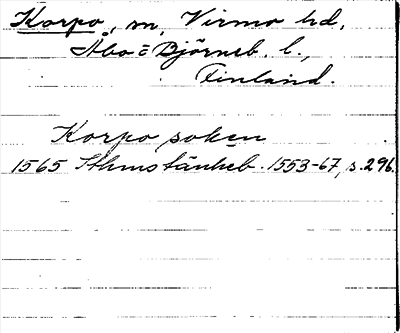 Korpo, sn, Virmo hd,
Åbo o Björneb. l.,
Finland.
Korpo soken
1565 Sthms tänkeb. 1553-67, s. 296.